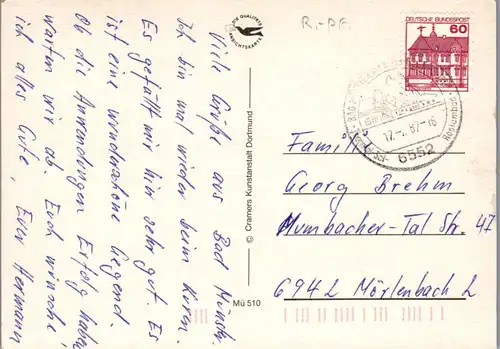 Viele Grüße aus Bad Münst.
Ich bin mal wieder beim Kuren.
Es gefällt mir hier sehr gut. Es
ist eine wunderschöne Gegend.
Ob die Anwendungen Erfolg haben
warten wir ab. Euch wünsche
ich alles Gute, Euer Hermann
DIE QUALITÄTS
ANSICHTSKARTE
© Cramers Kunstanstalt Dortmund
Mü 510
R.-PF.
DEUTSCHE BUNDESPOST
60
87-16
6552
Familie
Georg Brehm
Mumbacher-Tal Str. 47
6942 Mörlenbach 2